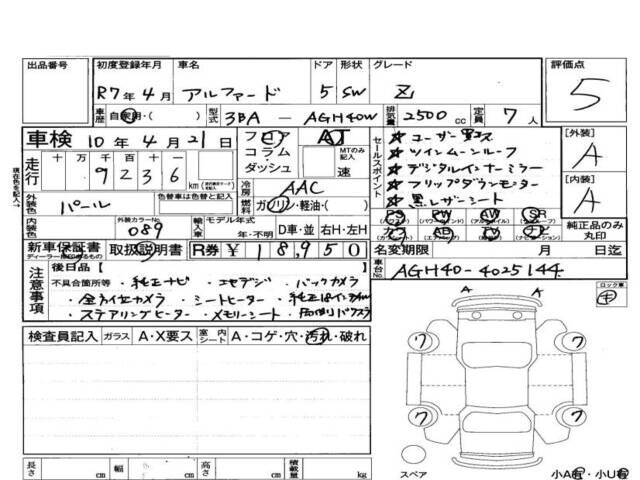 出品番号 初度登録年月 車名 ドア 形状 グレード 評価点
R7年4月 アルファード 5 SW Z 5
車歴 自家用・( ) 型式 3BA - AGH40W 排気量 2500cc 定員 7人
車検 10年4月21日 フロア コラム・ダッシュ AT MTのみ記入 速
セールスポイント
★ユーザー買取
★ツインムーンルーフ
★デジタルインナーミラー
★フリップダウンモニター
★黒レザーシート
[外装] A
[内装] A
走行 十万千百十 9236km
冷房 AAC
外装色 パール 色替車は色替と記入
燃料 ガソリン・軽油・( )
PS PW AW SR
純正品のみ丸印
内装色 外装カラーNo. 089 輸入車 モデル年式 年・不明 D車・並 右H・左H
新車保証書 ディーラー印のあるもの 取扱説明書 R券 ¥18,950
名変期限 月 日迄
車台No. AGH40-4025144
注意事項 後日品【
不具合箇所等 ・純正ナビ ・フルセグTV ・バックカメラ
・全方位カメラ ・シートヒーター ・純正18インチAW
・ステアリングヒーター ・メモリーシート
ロック車 キ
検査員記入 ガラス A・X要ス 室内シート A・コゲ・穴・汚れ・破れ
A A
ワ ワ
ワ ワ
長さ cm 幅 cm 高さ cm 積載量 kg
スペア 小A有・小U有